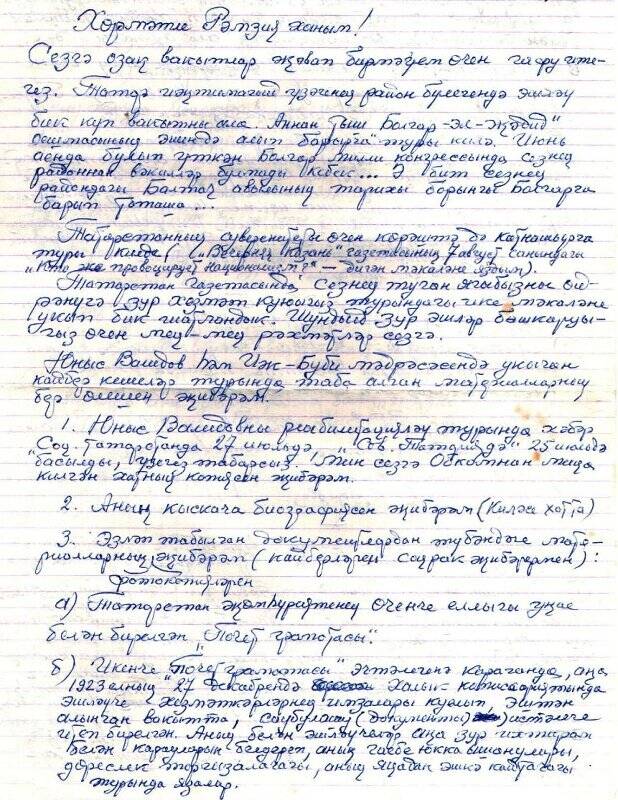 Хөрмәтле Рәмзия ханым!
Сезгә озак вакытлар җавап бирмәвем өчен гафу ите-
гез. Татар иҗтимагый үзәгенең район бүлегендә эшләү
бик күп вакытны ала. Аннан тыш Болгар-әл-Җәдид"
оешмасының эшендә алып барырга туры килә. Июнь
аенда булып үткән Болгар милли конгрессында сезнең
районнан вәкилләр булмады кебек... Ә бит сезнең
районда Балтач авылының тарихы борынгы Болгарга
барып тоташа...
Татарстанның суверенитеты өчен көрәштә дә катнашырга
туры килде ("Вечерняя Казань" газетасының 7 август санындагы
"Кто же провоцирует национализм?" – дигән мәкаләне яздым).
"Татарстан" газетасында Сезнең туган ягыбызны өй-
рәнүгә зур хезмәт куюыгыз турындагы ике мәкаләне
укып бик шатландык. Шундый зур эшләр башкаруы-
гыз өчен мең-мең рәхмәтләр сезгә.
Юныс Валидов һәм Иж-Буби мәдрәсәсендә укыган
кайбер кешеләр турында таба алган материалларның
бер өлешен җибәрәм.
1. Юныс Валидовны реабилитацияләү турында хәбәр
Соц. Татарстанда 27 июльдә, "Сов. Татариядә" 25 июльдә
басылды, үзегез табарсыз. Мин сезгә Обкомнан миңа
килгән хатның копиясен җибәрәм.
2. Аның кыскача биографиясен җибәрәм (Киләсе хатта)
3. Эзләп табылган документлардан түбәндәге мате-
риалларның җибәрәм (кайберләрен соңрак җибәрермен):
фотокопияләрен
а) Татарстан җөмһүриятенең өченче еллыгы уңае
белән бирелгән "Почет грамотасы".
б) Икенче "Почет грамотасы" эчтәлегенә караганда, аңа
1923 елның 27 декабрендә Халык комиссариатында
эшләүче хезмәткәрләрнең имзалары куелып, эштән
алынган вакытта, саубуллашу (документы) истәлеге
итеп бирелгән. Аның белән эшләүчеләр аңа зур ихтирам
белән карауларын белдереп, аның гаебе юкка ышанулары,
дөреслек торгызылачагы, аның яңадан эшкә кайтачагы
турында язалар.